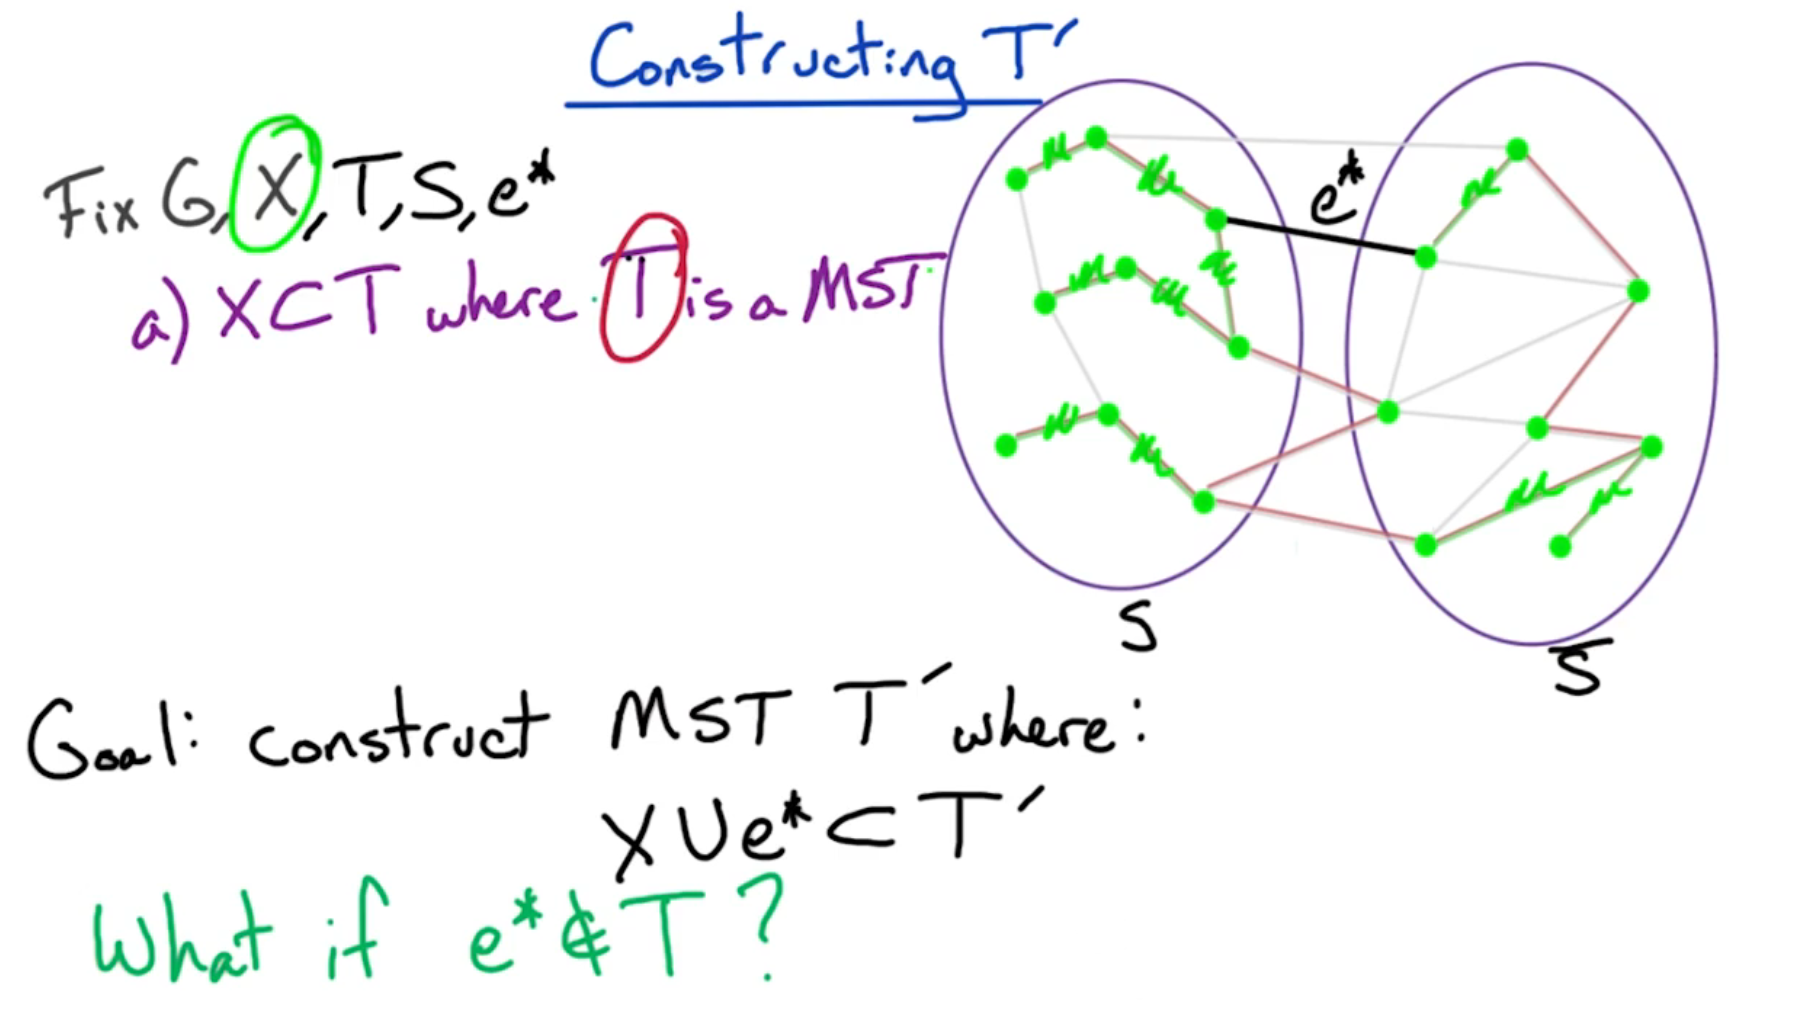 Constructing T′
Fix G, X, T, S, e*
a) X⊂T where T is a MST
e*
S
S̅
Goal: construct MST T′ where:
X∪e*⊂T′
What if e*∉T?